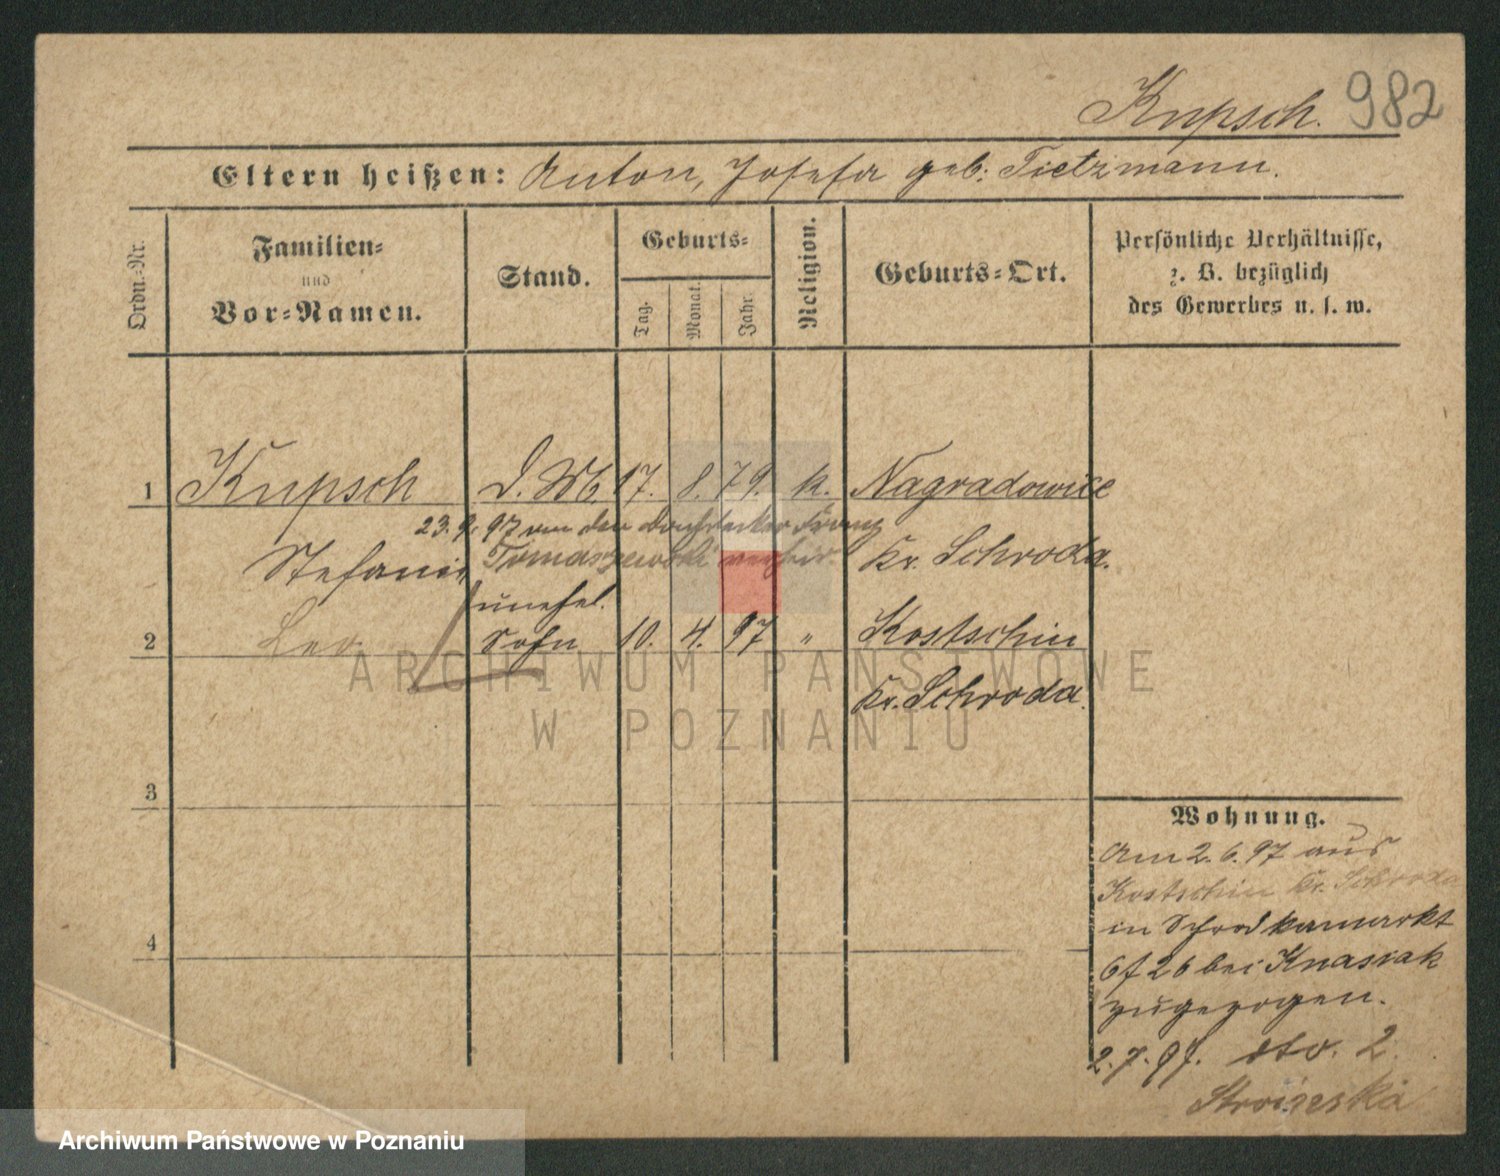 Kupsch. 982
Eltern heißen: Anton, Josefa geb: Tietzmann.
Ordn.-Nr.
Familien-
und
Vor-Namen.
Stand.
Geburts-
Tag.
Monat.
Jahr.
Religion.
Geburts-Ort.
Persönliche Verhältnisse,
z. B. bezüglich
des Gewerbes u. s. w.
1 Kupsch D. M. 17. 8. 79. k. Nagradowice
23. 9. 97 von den Dachdecker Franz
Stefanie Tomaszewski verheir. Kr. Schroda.
unehel.
2 Leo Sohn 10. 4. 97 " Kostschin
Kr. Schroda.
3
4
Wohnung.
Am 2. 6. 97 aus
Kostschin Kr. Schroda
in Schrodkamarkt
6 f 26 bei Knasiak
zugezogen.
2. 7. 97. dto. 2
ARCHIWUM PAŃSTWOWE
W POZNANIU
Archiwum Państwowe w Poznaniu